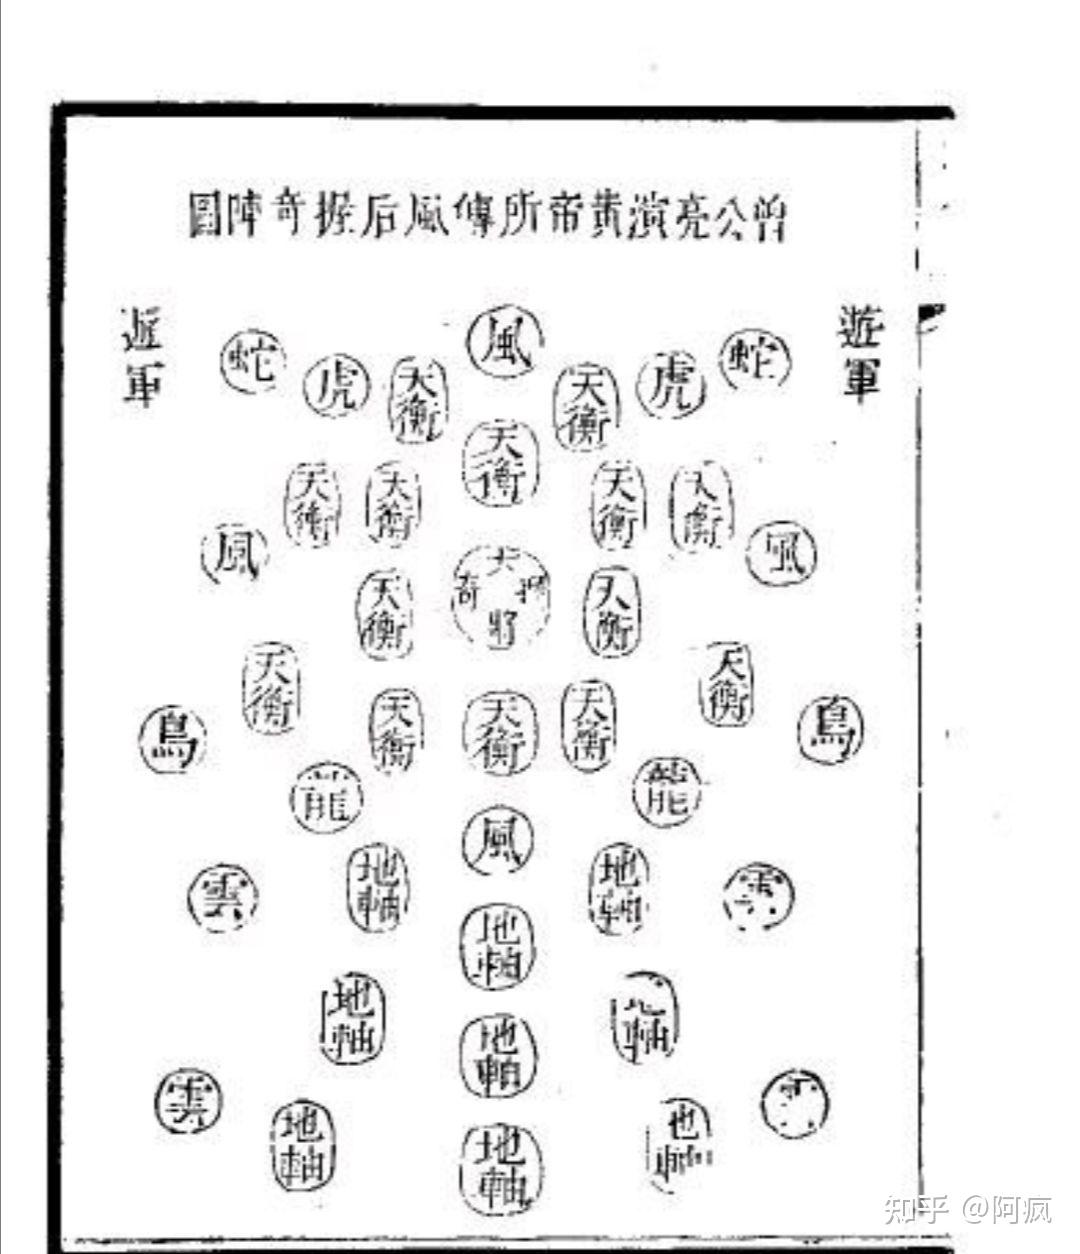 曾公亮演黃帝所傳風后握奇陣圖
遊軍
蛇
虎
天衡
風
天衡
虎
蛇
遊軍
天衡
天衡
天衡
天衡
天衡
風
風
天衡
大將
握奇
天衡
天衡
天衡
鳥
天衡
天衡
天衡
鳥
龍
龍
風
雲
地軸
地軸
雲
地軸
地軸
地軸
地軸
雲
地軸
地軸
地軸
知乎 @阿疯